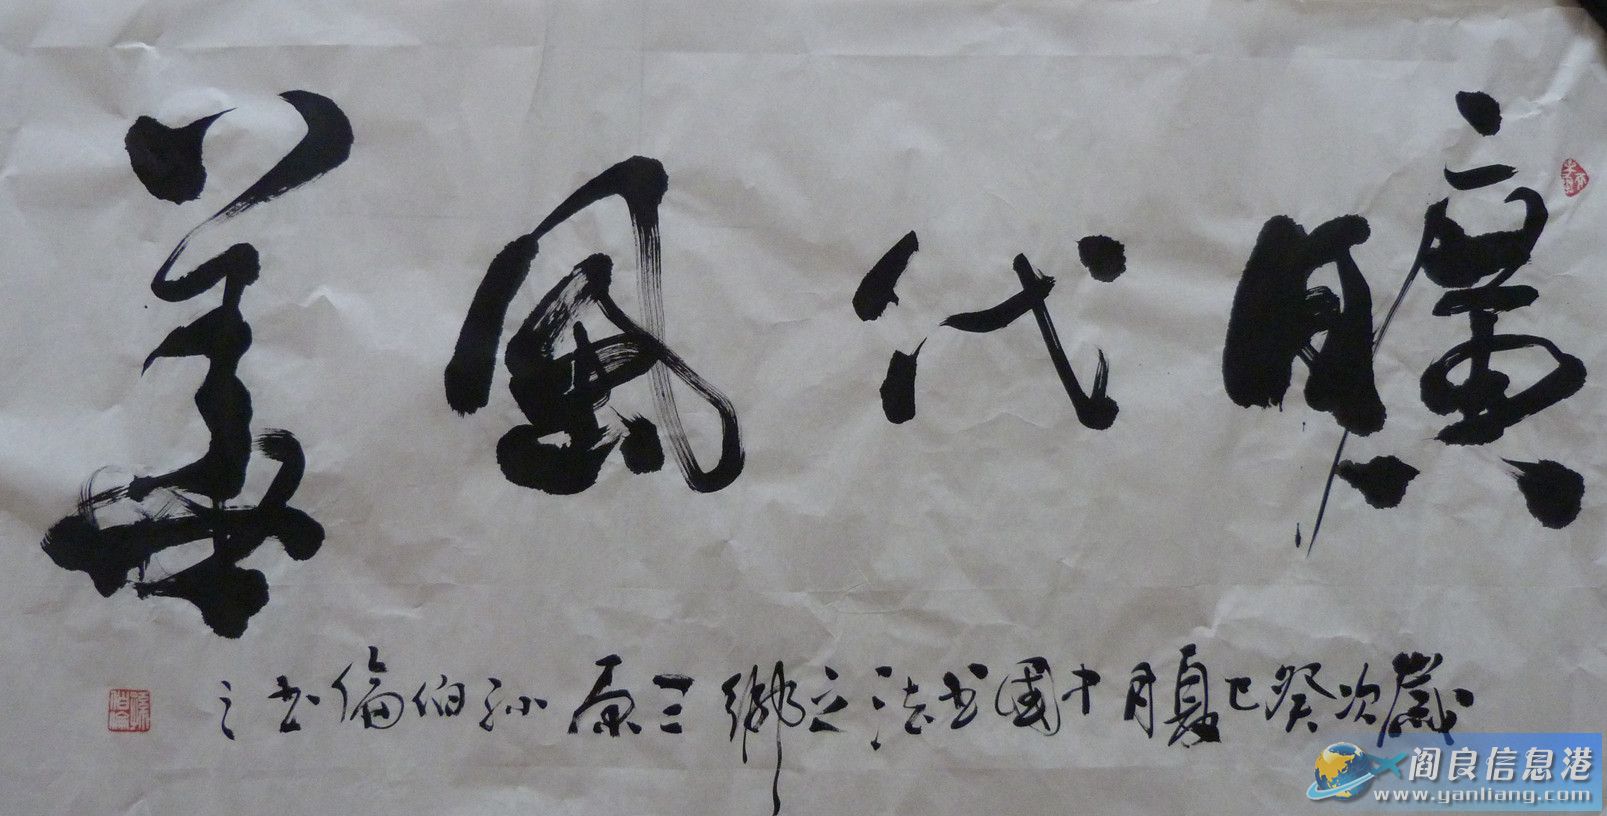 曠代風華
歲次癸巳夏月中國書法之鄉三原孫伯倫書之
阎良信息港
www.yanliang.com